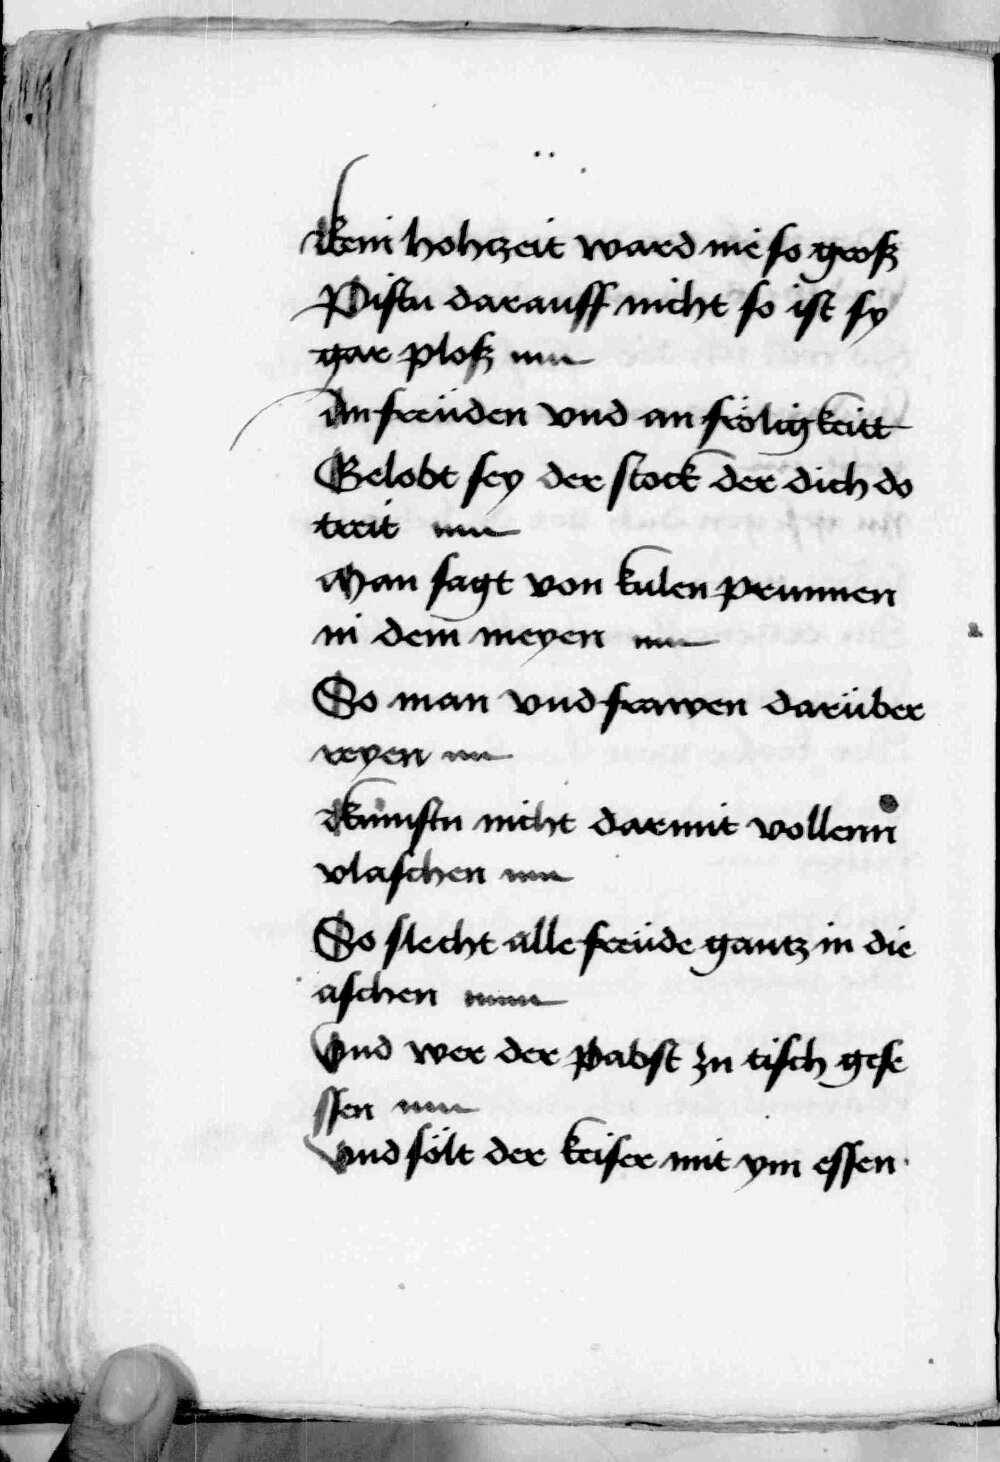 Kein hohczeit ward nie so groß
Pistu darauff nicht so ist sy
gar ploß
An freüden vnd an fröligkeitt
Gelobt sey der stock der dich do
treit
Man sagt von kulen prunnen
in dem meyen
So man vnd frawen darüber
reyen
Kumstu nicht darmit vollenn
vlaschen
So slecht alle freüde gantz in die
aschen
Vnd wer der pabst zu tisch gese
ssen
Vnd sölt der keiser mit ym essen